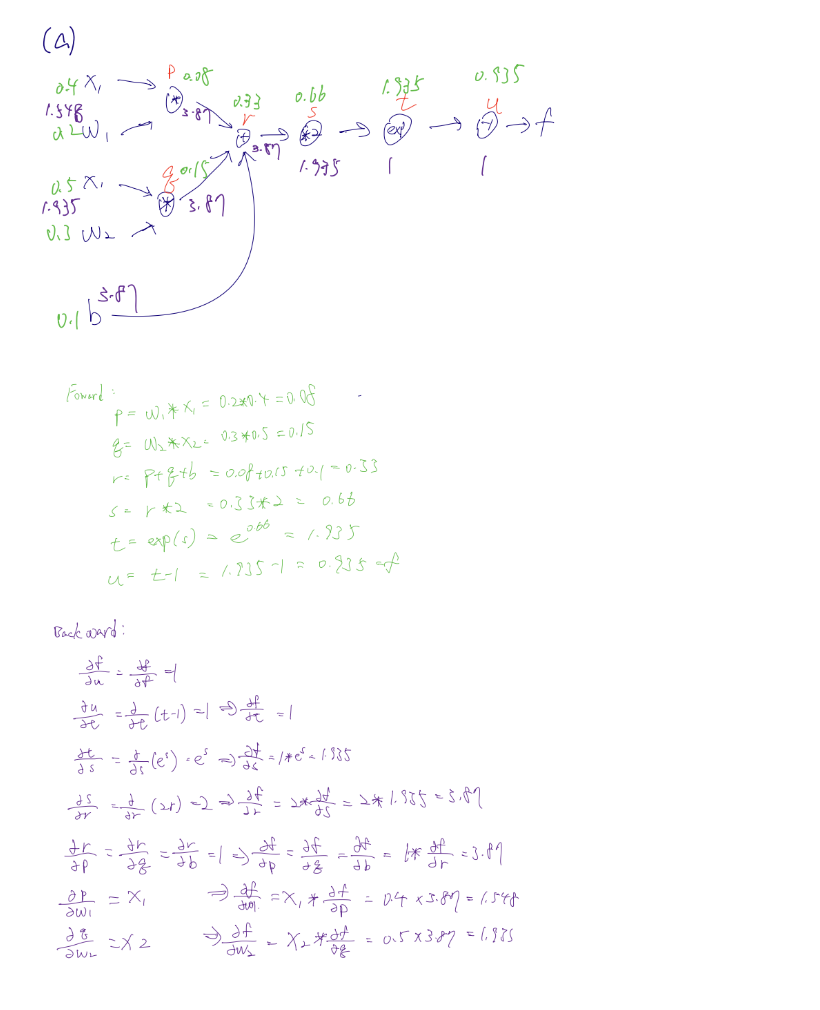 (a)
0.4 x₁ p 0.08 0.33 0.66 1.935 0.935
1.548 * 3.87 r s t u
0.2 w₁ + *2 exp -1 f
3.87 1.935 1 1
0.5 x₁ q 0.15
1.935 * 3.87
0.3 w₂
3.87
0.1 b
Forward:
p = w₁ * x₁ = 0.2*0.4 = 0.08
q = w₂ * x₂ = 0.3*0.5 = 0.15
r = p+q+b = 0.08+0.15+0.1 = 0.33
s = r*2 = 0.33*2 = 0.66
t = exp(s) = e^0.66 = 1.935
u = t-1 = 1.935-1 = 0.935 = f
Backward:
∂f/∂u = ∂f/∂f = 1
∂u/∂t = ∂/∂t (t-1) = 1 ⇒ ∂f/∂t = 1
∂t/∂s = ∂/∂s (e^s) = e^s ⇒ ∂f/∂s = 1*e^s = 1.935
∂s/∂r = ∂/∂r (2r) = 2 ⇒ ∂f/∂r = 2*∂f/∂s = 2*1.935 = 3.87
∂r/∂p = ∂r/∂q = ∂r/∂b = 1 ⇒ ∂f/∂p = ∂f/∂q = ∂f/∂b = 1*∂f/∂r = 3.87
∂p/∂w₁ = x₁ ⇒ ∂f/∂w₁ = x₁ * ∂f/∂p = 0.4 × 3.87 = 1.548
∂q/∂w₂ = x₂ ⇒ ∂f/∂w₂ = x₂ * ∂f/∂q = 0.5 × 3.87 = 1.935